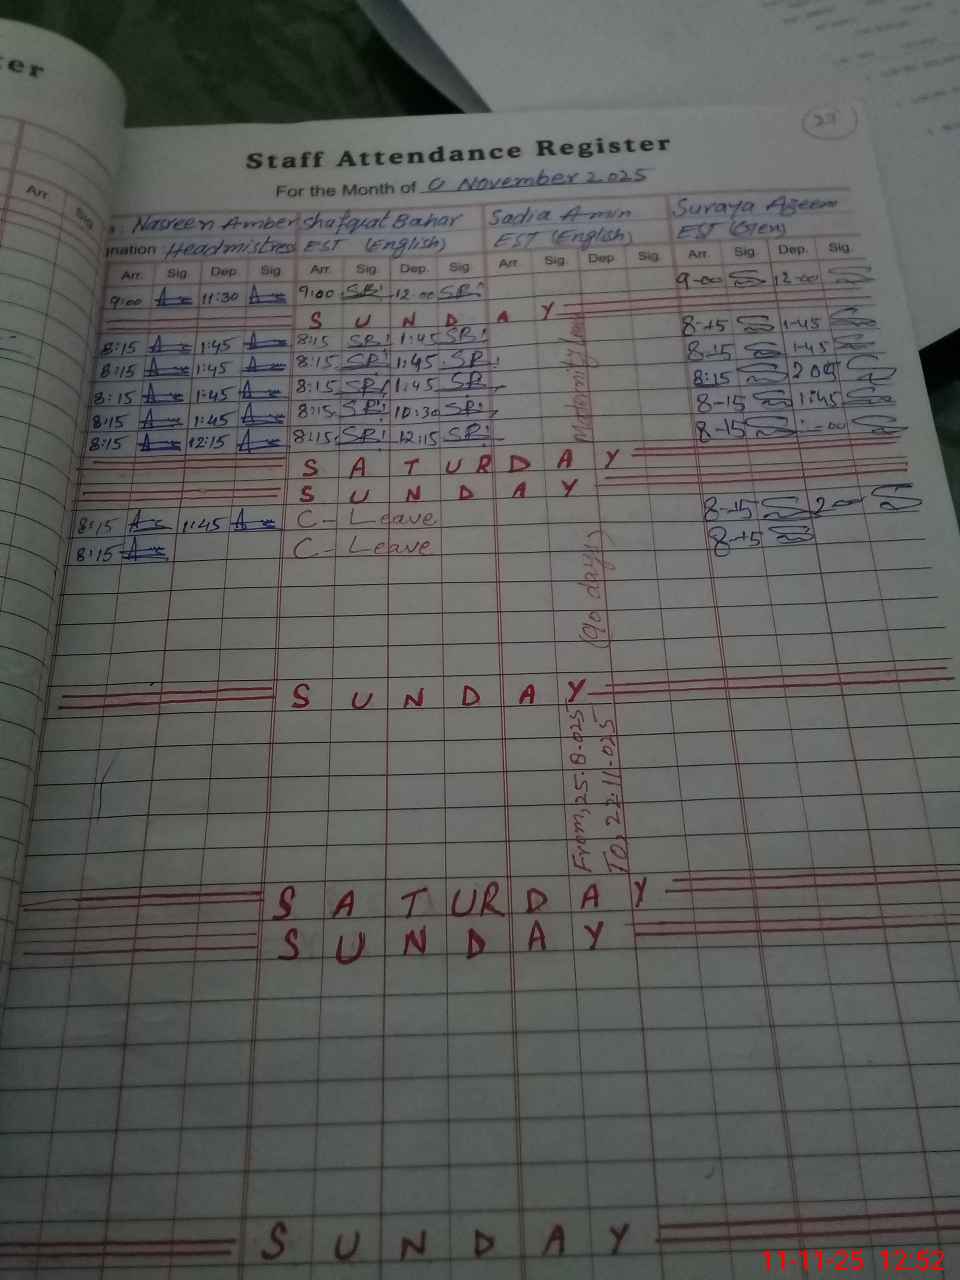 ter
Arr.
Sig
27
Staff Attendance Register
For the Month of November 2025
Nasreen Amber Shafqat Bahar Sadia Amin Suraya Azeem
nation Headmistres EST (English) EST (English) EST (Gen)
Arr. Sig Dep. Sig. Arr. Sig. Dep. Sig Arr. Sig Dep Sig. Arr. Sig. Dep. Sig.
9:00 11:30 9:00 SR! 12:00 SR! 9-00 12-00
S U N D A Y
8:15 1:45 8:15 SR! 1:45 SR! 8-15 1-45
8:15 1:45 8:15 SR! 1:45 SR! 8-15 1-45
8:15 1:45 8:15 SR! 1:45 SR 8:15 2 05
8:15 1:45 8:15 SR! 10:30 SR! 8-15 1:45
8:15 12:15 8:15 SR! 12:15 SR! 8-15
S A T U R D A Y
S U N D A Y
8:15 1:45 C- Leave 8-15
8:15 C- Leave 8-15
Maternity leave
(90 days)
From, 25.8.025
To, 22.11.025
S U N D A Y
S A T U R D A Y
S U N D A Y
S U N D A Y
11-11-25 12:52